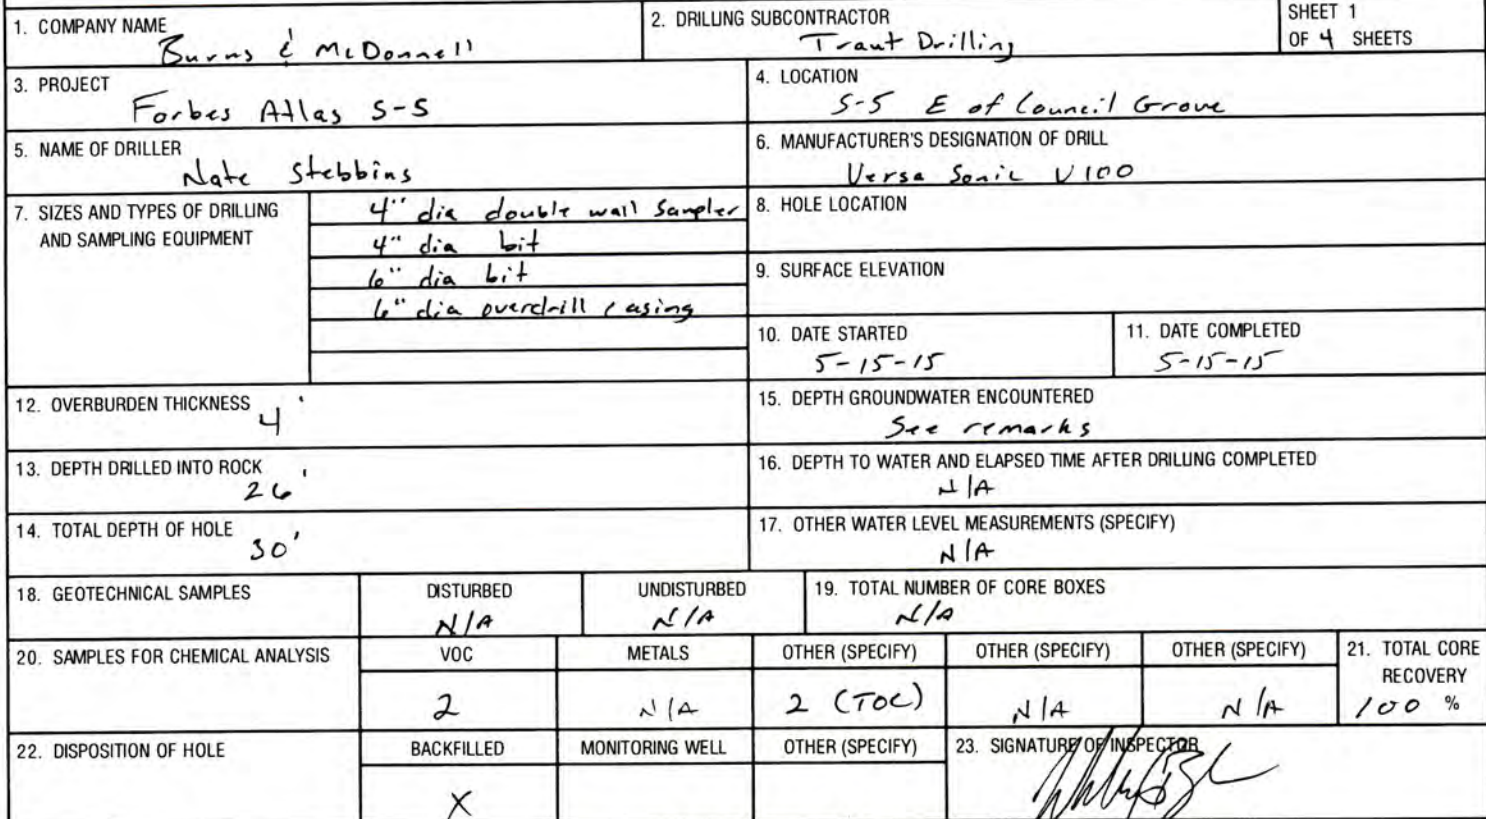 1. COMPANY NAME
Burns & McDonnell
2. DRILLING SUBCONTRACTOR
Traut Drilling
SHEET 1
OF 4 SHEETS
3. PROJECT
Forbes Atlas S-5
4. LOCATION
S-5 E of Council Grove
5. NAME OF DRILLER
Nate Stebbins
6. MANUFACTURER'S DESIGNATION OF DRILL
Versa Sonic V100
7. SIZES AND TYPES OF DRILLING
AND SAMPLING EQUIPMENT
4" dia double wall Sampler
4" dia bit
6" dia bit
6" dia overdrill casing
8. HOLE LOCATION
9. SURFACE ELEVATION
10. DATE STARTED
5-15-15
11. DATE COMPLETED
5-15-15
12. OVERBURDEN THICKNESS
4'
15. DEPTH GROUNDWATER ENCOUNTERED
See remarks
13. DEPTH DRILLED INTO ROCK
26'
16. DEPTH TO WATER AND ELAPSED TIME AFTER DRILLING COMPLETED
N/A
14. TOTAL DEPTH OF HOLE
30'
17. OTHER WATER LEVEL MEASUREMENTS (SPECIFY)
N/A
18. GEOTECHNICAL SAMPLES
DISTURBED
N/A
UNDISTURBED
N/A
19. TOTAL NUMBER OF CORE BOXES
N/A
20. SAMPLES FOR CHEMICAL ANALYSIS
VOC
METALS
OTHER (SPECIFY)
OTHER (SPECIFY)
OTHER (SPECIFY)
21. TOTAL CORE
RECOVERY
2
N/A
2 (TOC)
N/A
N/A
100 %
22. DISPOSITION OF HOLE
BACKFILLED
MONITORING WELL
OTHER (SPECIFY)
23. SIGNATURE OF INSPECTOR
X